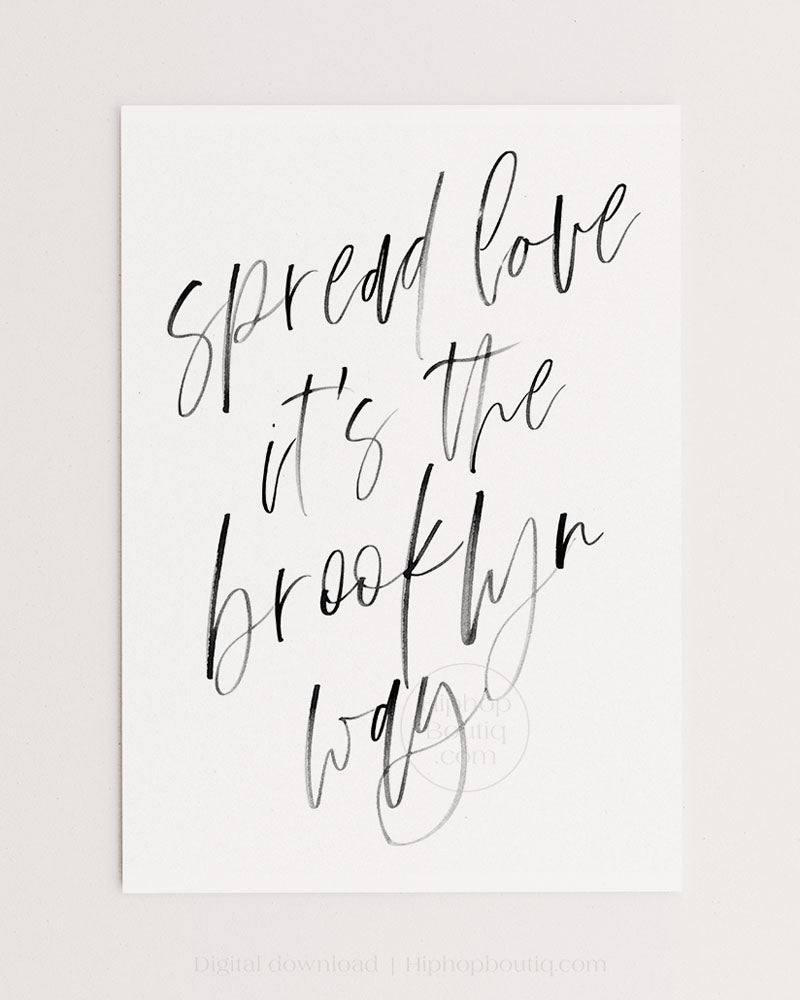 spread love
it's the
brooklyn
way
Hiphop
Boutiq
.com
Digital download | Hiphopboutiq.com